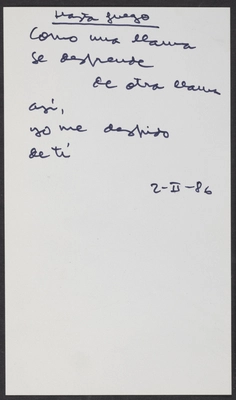 Hasta fuego
Como una llama
se desprende
de otra llama
así,
yo me despido
de ti
2-II-86